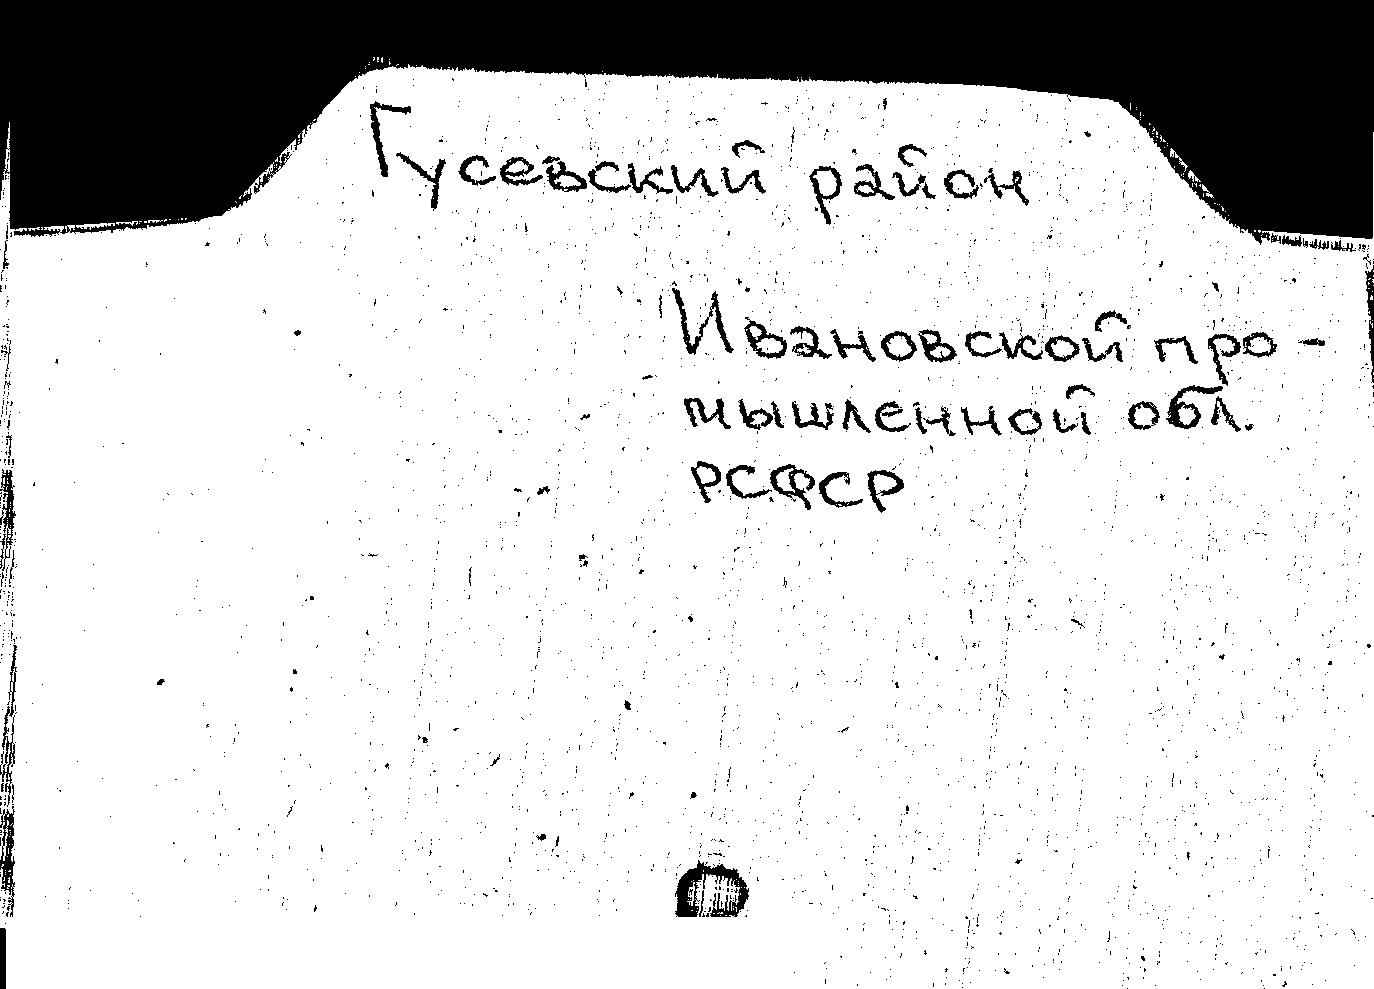 Гусевский район
Ивановской про-
мышленной обл.
РСФСР